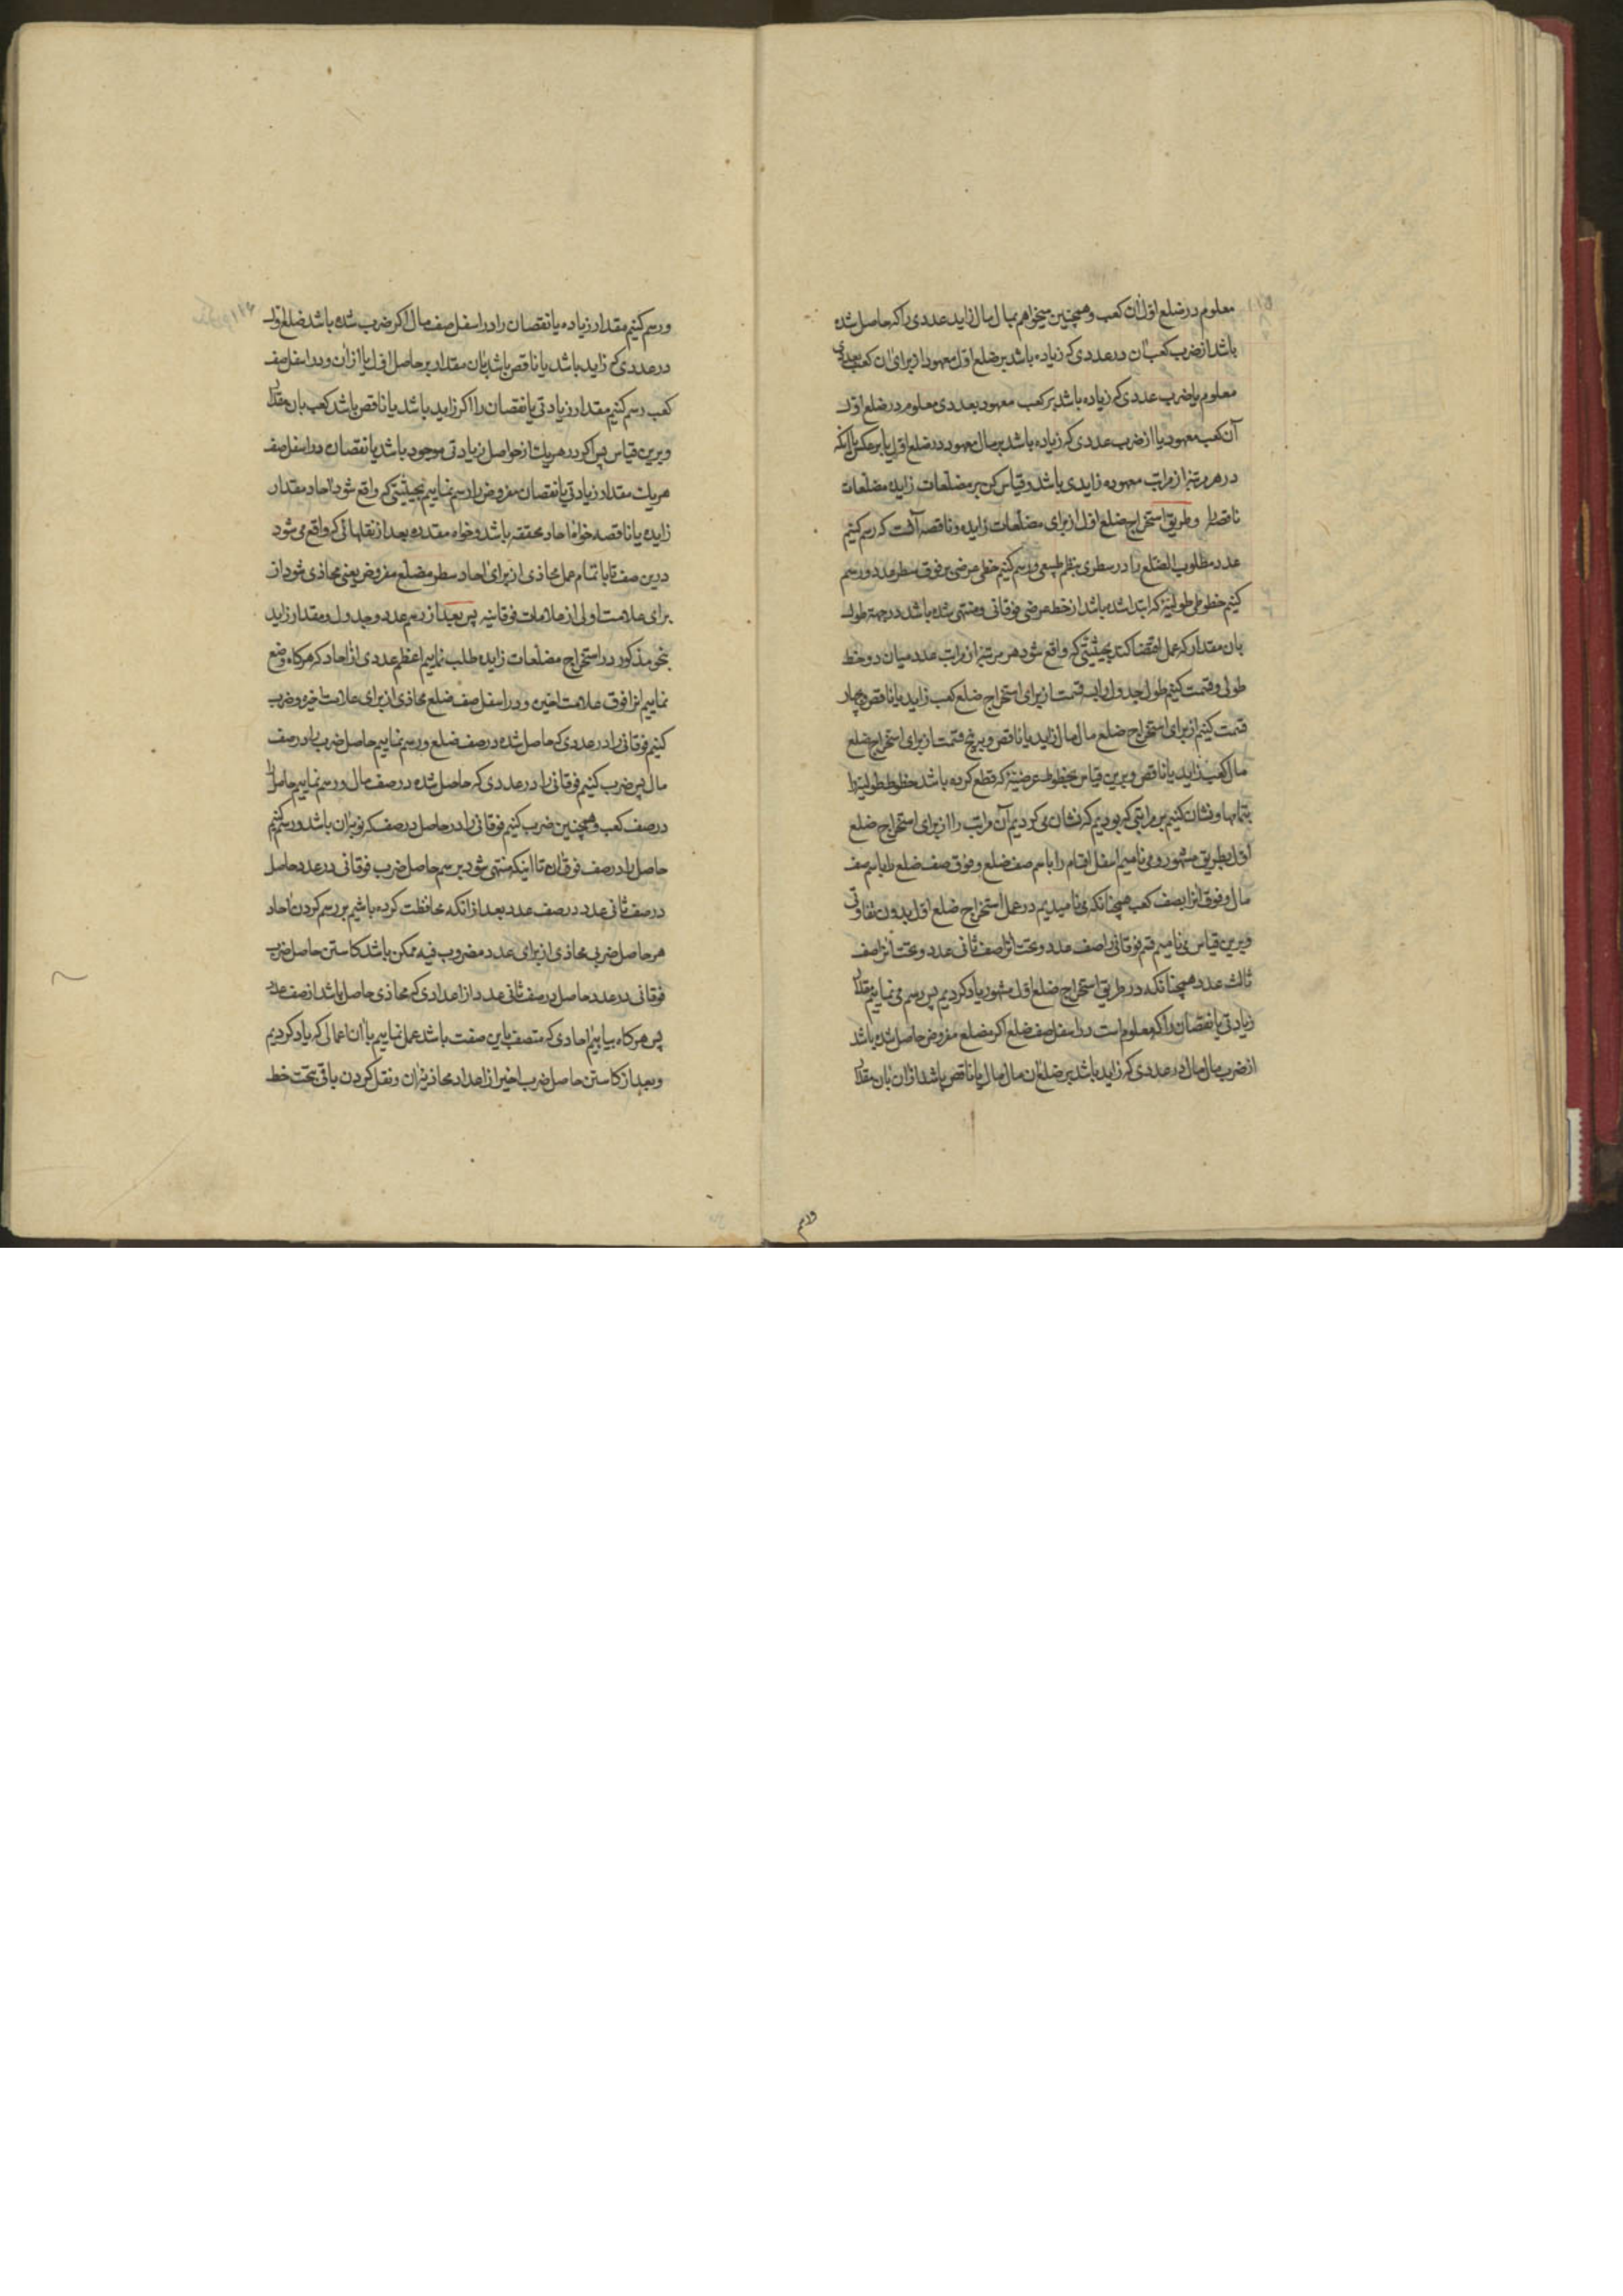 معلوم در ضلع اول آن کعب و همچنین میخواهم بمال مال زاید عددی را که حاصل شده
باشد از ضرب کعب آن در عددی که زیاده باشد بر ضلع اول معهود از برای آن کعب بعددی
معلوم یا ضرب عددی که زیاده باشد بر کعب معهود بعددی معلوم در ضلع اول
آن کعب معهود یا از ضرب عددی که زیاده باشد بر مال معهود در ضلع اول یا برعکس یا آنکه
در هر مرتبه از مراتب معهوده زایدی باشد و قیاس کن بر مضلعات زایده مضلعات
ناقصه را و طریق استخراج ضلع اول از برای مضلعات زایده و ناقصه آنست که رسم کنیم
عدد مطلوب الضلع را در سطری بنظم طبیعی و رسم کنیم خطی عرضی بر فوق سطر عدد و رسم
کنیم خطوطی طولیه که ابتدا شده باشد از خط عرضی فوقانی و منتهی شده باشد در جهة طول
بان مقدار که عمل اقتضا کند بحیثیتی که واقع شود هر مرتبه از مراتب عدد میان دو خط
طولی و قسمت کنیم طول جدول را بسه قسمت از برای استخراج ضلع کعب زاید یا ناقص و بچهار
قسمت کنیم از برای استخراج ضلع مال مال زاید یا ناقص و بپنج قسمت از برای استخراج ضلع
مال کعب زاید یا ناقص و برین قیاس بخطوط عرضیة که قطع کرده باشد خطوط طولیه را
بتمامها و نشان کنیم بر مراتبی که بودیم که نشان می کردیم آن مراتب را از برای استخراج ضلع
اول بطریق مشهور و می نامیم اسفل اقسام را باسم صف ضلع و فوق صف ضلع را باسم صف
مال و فوق انرا بصف کعب همچنانکه می نامیدیم در عمل استخراج ضلع اول بدون تفاوتی
و برین قیاس می نامیم قسم فوقانی را صف عدد و تحت انرا صف ثانی عدد و تحت انرا صف
ثالث عدد همچنانکه در طریق استخراج ضلع اول مشهور یاد کردیم پس رسم می نماییم مقدار
زیادتی یا نقصان را که معلوم است در اسفل صف ضلع اگر مضلع مفروض حاصل شده باشد
از ضرب مال مال در عددی که زاید باشد بر ضلع آن مال مال یا ناقص باشد از ان بان مقدار
ورسم
ورسم کنیم مقدار زیاده یا نقصان را در اسفل صف مال اگر ضرب شده باشد ضلع اول
در عددی که زاید باشد یا ناقص باشد بان مقدار بر حاصل اول یا از ان و در اسفل صف
کعب رسم کنیم مقدار زیادتی یا نقصان را اگر زاید باشد یا ناقص باشد کعب بان مقدار
و برین قیاس پس اگر در هر یک از حواصل زیادتی موجود باشد یا نقصان در اسفل صف
هر یک مقدار زیادتی یا نقصان مفروض را رسم نماییم بحیثیتی که واقع شود احاد مقدار
زایده یا ناقصه خواه احاد محققه باشد و خواه مقدره بعد از نقلهائی که واقع می شود
درین صف تا باتمام عمل محاذی از برای احاد سطر مضلع مفروض یعنی محاذی شود از
برای علامت اولی از علامات فوقانیه پس بعد از رسم عدد و جدول و مقدار زاید
بنحو مذکور در استخراج مضلعات زایده طلب نماییم اعظم عددی از احاد که هرکاه وضع
نماییم انرا فوق علامت اخیره و در اسفل صف ضلع محاذی از برای علامت اخیره و ضرب
کنیم فوقانی را در عددی که حاصل شده در صف ضلع و رسم نماییم حاصل ضرب را در صف
مال پس ضرب کنیم فوقانی را در عددی که حاصل شده در صف مال و رسم نماییم حاصل را
در صف کعب و همچنین ضرب کنیم فوقانی را در حاصل در صف که نوبة ان باشد و رسم کنیم
حاصل را در صف فوق ان تا اینکه منتهی شود برسم حاصل ضرب فوقانی در عدد حاصل
در صف ثانی عدد در صف عدد بعد از انکه محافظت کرده باشیم بر رسم کردن احاد
هر حاصل ضربی محاذی از برای عدد مضروب فیه ممکن باشد کاستن حاصل ضرب
فوقانی در عدد حاصل در صف ثانی عدد از اعدادی که محاذی حاصل باشد از صف عدد
پس هرکاه بیابیم احادی که متصف باین صفت باشد عمل نماییم با ان اعمالی که یاد کردیم
و بعد از کاستن حاصل ضرب اخیر از اعداد محاذیه ان و نقل کردن باقی بتحت خط